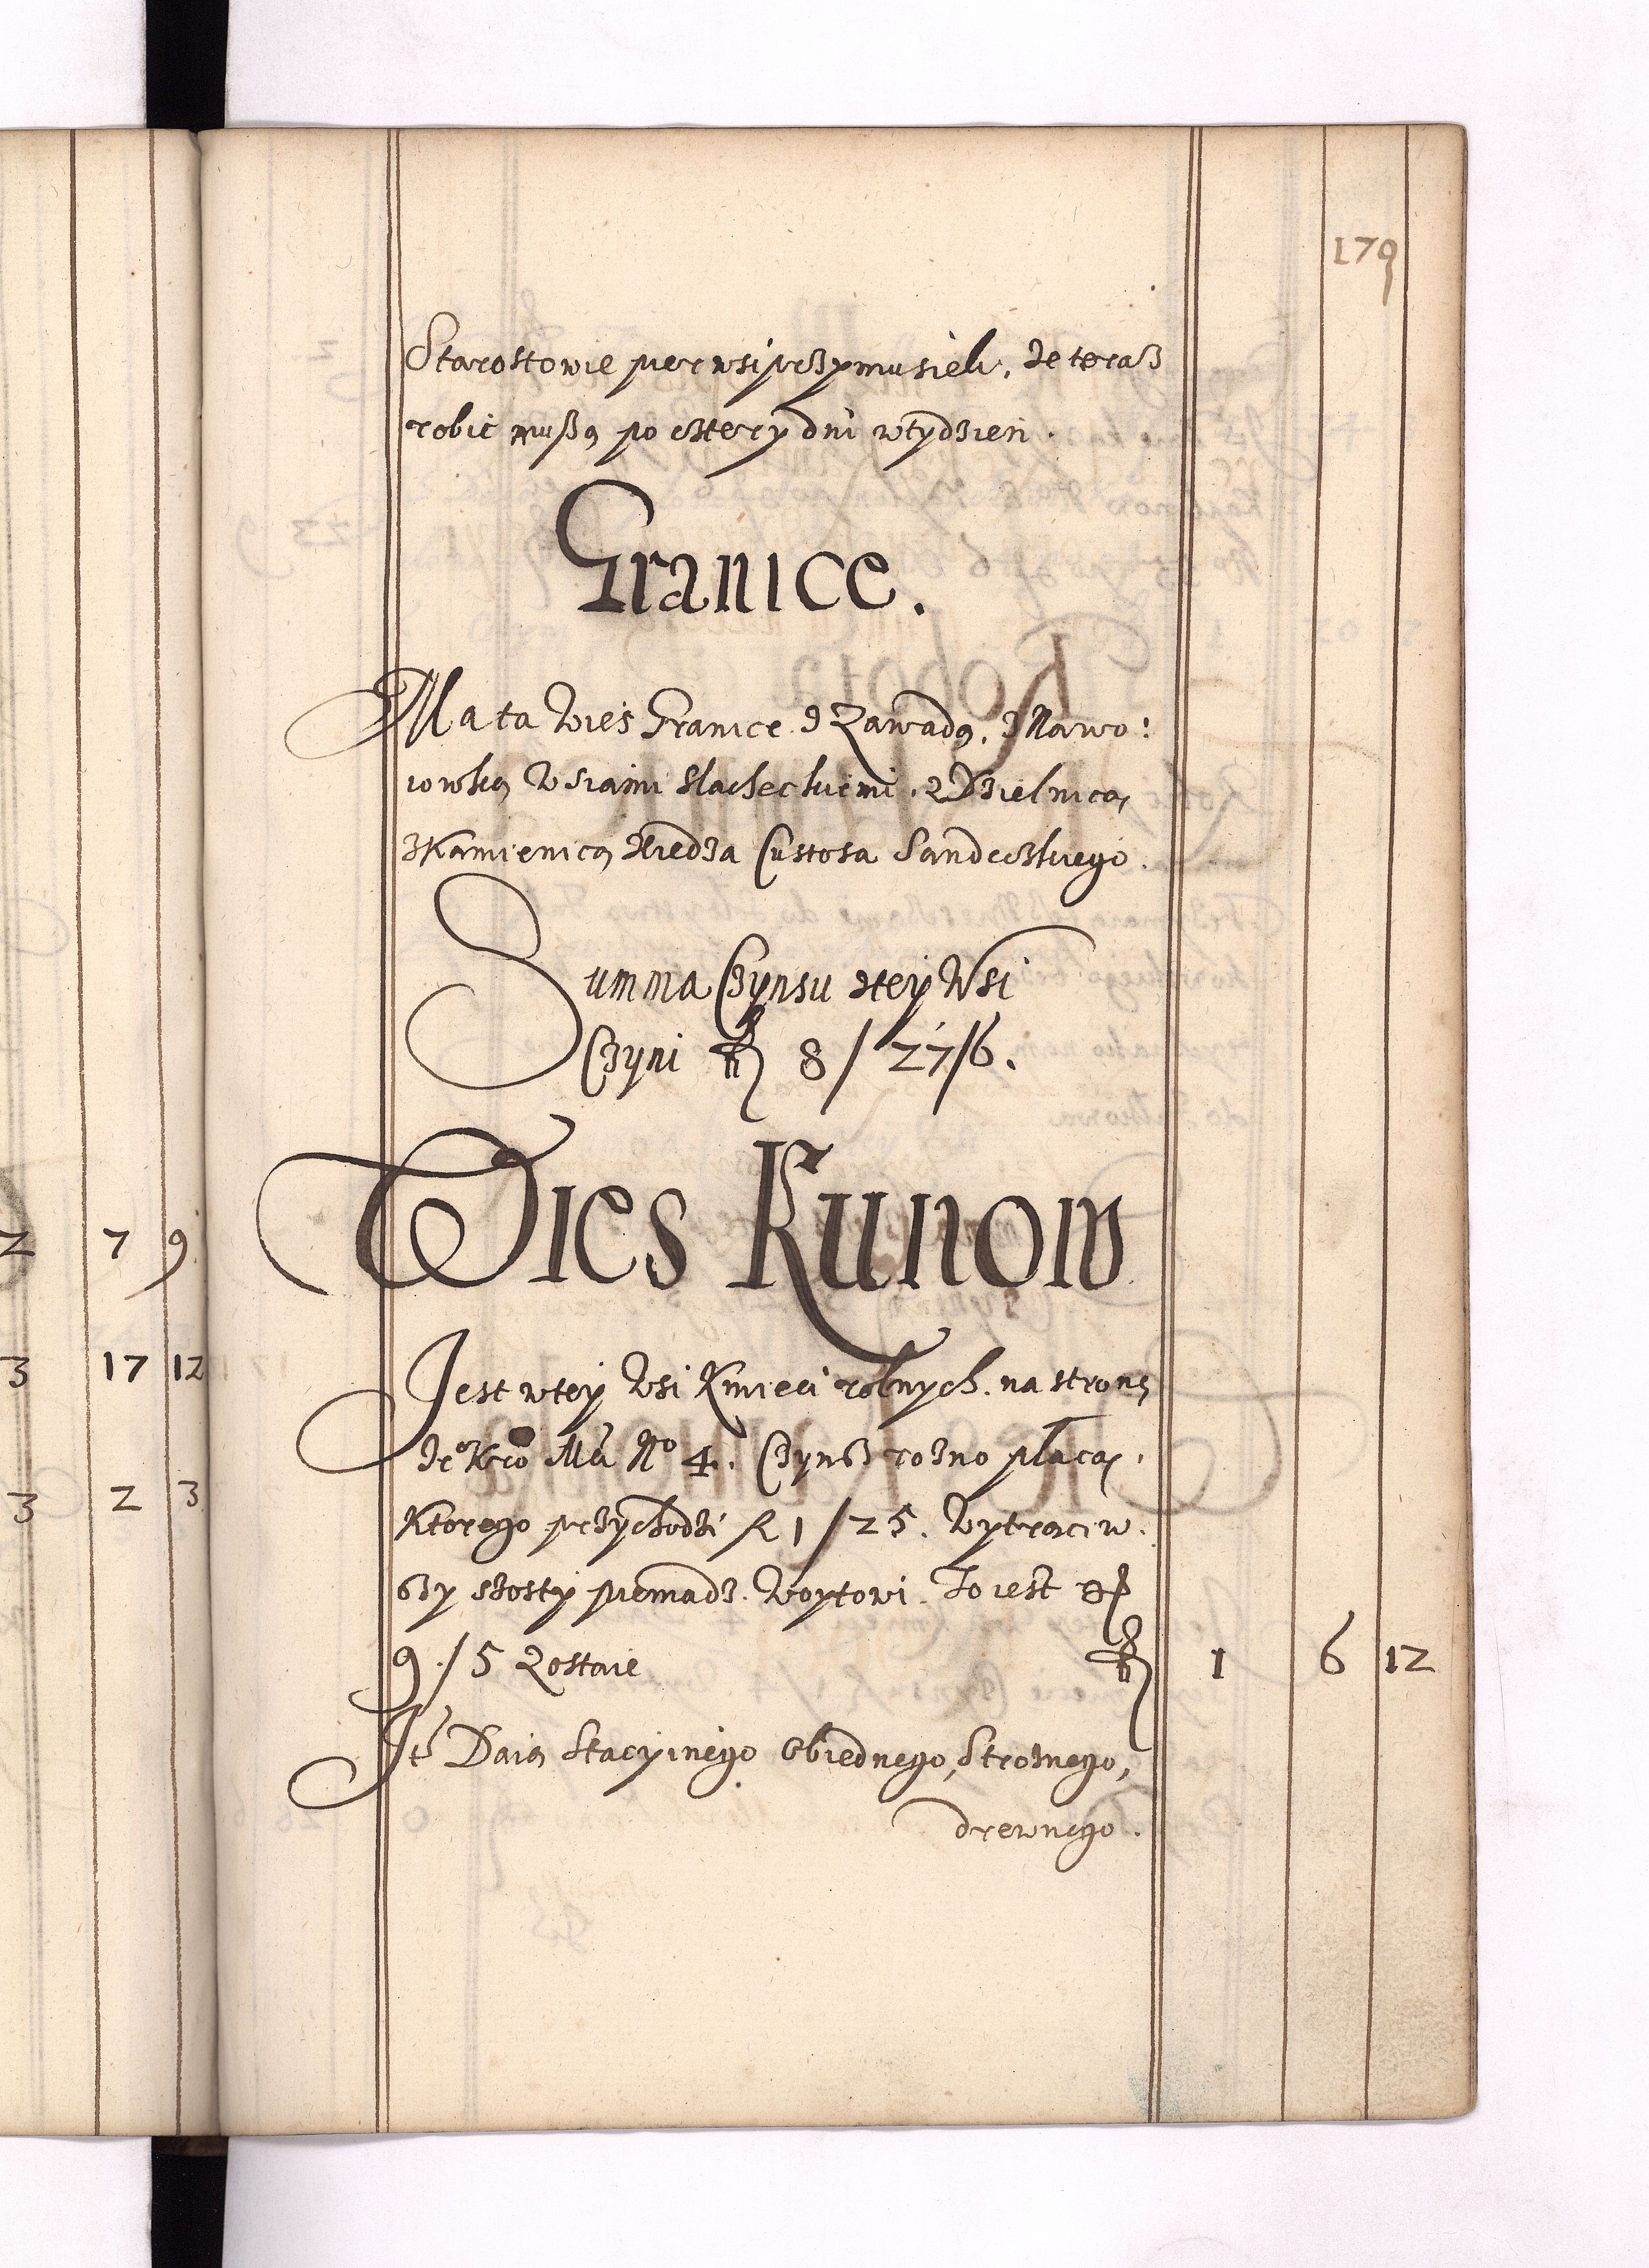 179
Starostowie pierwsi przymusieli, że teraz
robić muszą po cztery dni w tydzień.
Granice.
Ma ta Wieś Granice z Zawadą, z Nawo:
iowką Wsiami slacheckiemi, z Dzielnicą
z Kamienicą Xiedza Custosa Sandeczkiego.
Summa Czynsu z tey Wsi
Czyni 8/27/6.
Wies Kunow
Jest w tey Wsi Kmieci rolnych, na stronę
Je° Kro Mci N° 4. Czynsz rozno płacą,
Ktorego przychodzi 1/25. Wytrąciw
szy szosty pieniadz. Woytowi. To iest
9/5 Zostaie 1 6 12
It Daią Stacyinego Obiednego, Stroznego,
drewnego.
2 7 9
3 17 12
3 2 3